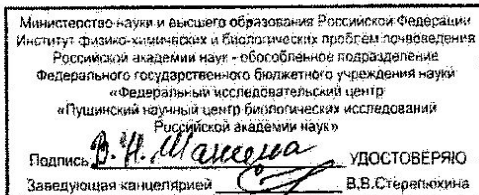 Министерство науки и высшего образования Российской Федерации
Институт физико-химических и биологических проблем почвоведения
Российской академии наук - обособленное подразделение
Федерального государственного бюджетного учреждения науки
«Федеральный исследовательский центр
«Пущинский научный центр биологических исследований
Российской академии наук»
Подпись В. Н. УДОСТОВЕРЯЮ
Заведующая канцелярией В.В.Стерепюхина